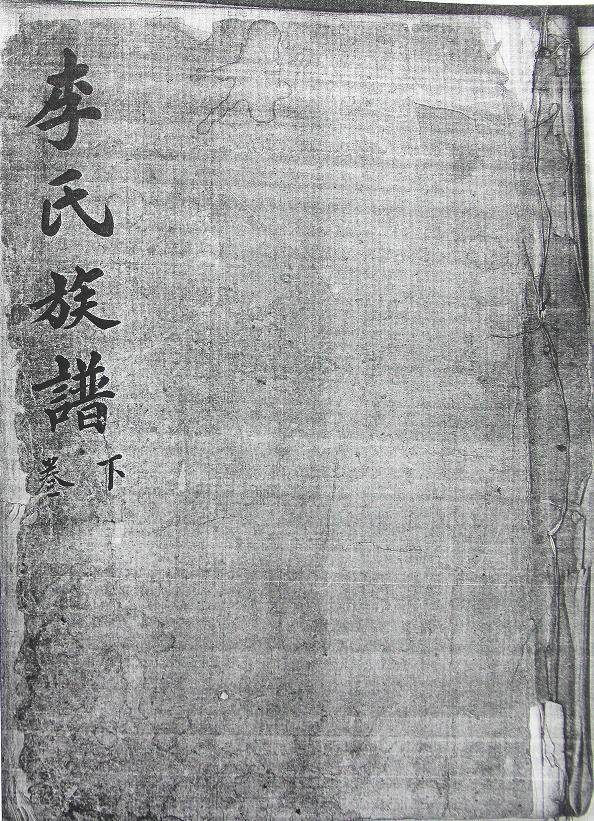 李氏族譜
下
叁